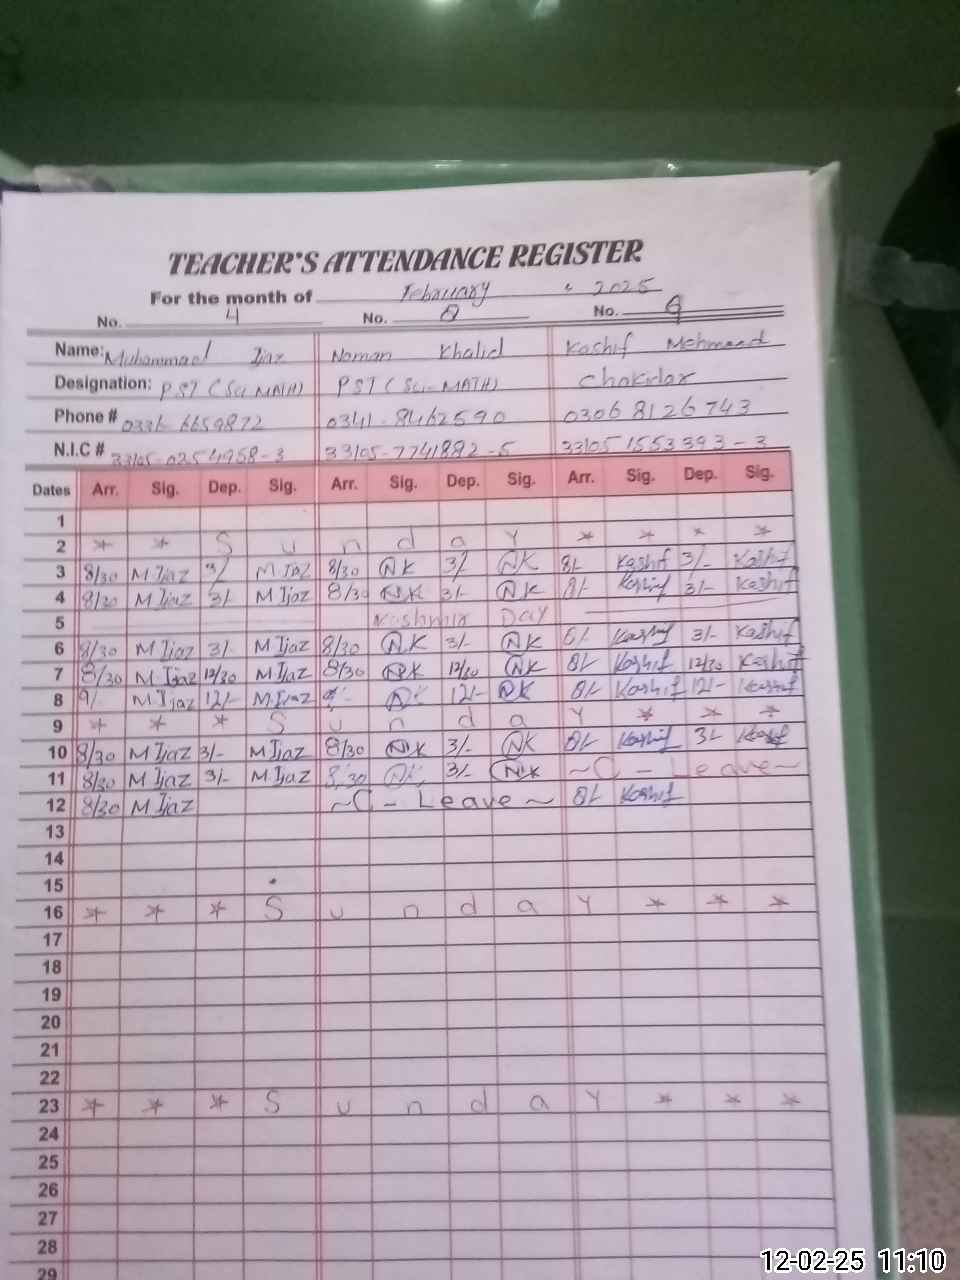 TEACHER'S ATTENDANCE REGISTER
For the month of February 2025
No. 4 No. No.
Name: Muhammad Ijaz Noman Khalid Kashif Mehmood
Designation: PST (Sci MATH) PST (Sci-MATH) Chokidar
Phone # 0336-6659872 0341-8462590 0306 8126743
N.I.C # 33105-0254958-3 33105-7741882-5 33105 1553393-3
Dates Arr. Sig. Dep. Sig. Arr. Sig. Dep. Sig. Arr. Sig. Dep. Sig.
1
2 * * S u n d a y * * * *
3 8/30 M Ijaz 3/ M Ijaz 8/30 NK 3/ NK 8/- Kashif 3/- Kashif
4 8/30 M Ijaz 3/- M Ijaz 8/30 NK 3/- NK 8/- Kashif 3/- Kashif
5 Kashmir Day
6 8/30 M Ijaz 3/- M Ijaz 8/30 NK 3/- NK 8/- Kashif 3/- Kashif
7 8/30 M Ijaz 12/30 M Ijaz 8/30 NK 12/30 NK 8/- Kashif 12/30 Kashif
8 9/- M Ijaz 12/- M Ijaz 12/- NK 8/- Kashif 12/- Kashif
9 * * * S u n d a y * * *
10 8/30 M Ijaz 3/- M Ijaz 8/30 NK 3/- NK 8/- Kashif 3/- Kashif
11 8/30 M Ijaz 3/- M Ijaz 8/30 NK 3/- NK ~C - Leave~
12 8/30 M Ijaz ~C - Leave~ 8/- Kashif
13
14
15
16 * * * S u n d a y * * *
17
18
19
20
21
22
23 * * * S u n d a y * * *
24
25
26
27
28
29
12-02-25 11:10